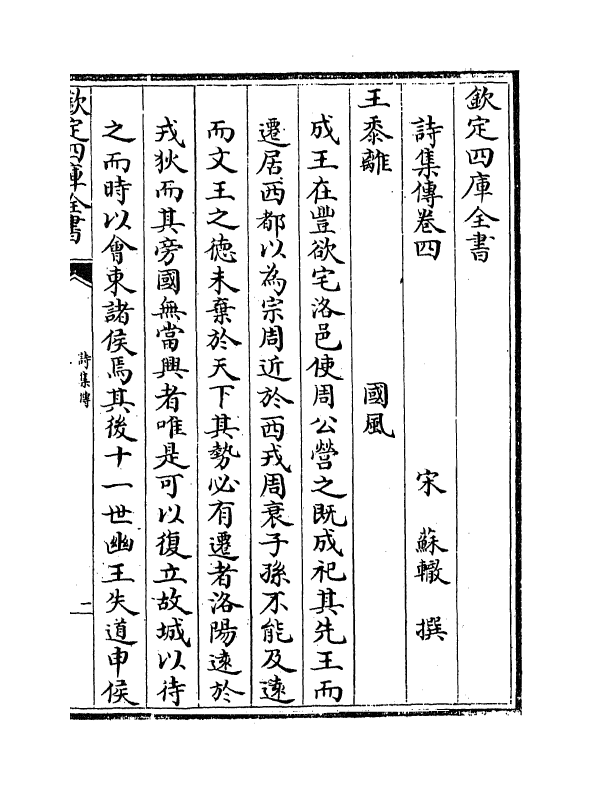 欽定四庫全書
詩集傳卷四 宋 蘇轍 撰
王黍離 國風
成王在豐欲宅洛邑使周公營之既成祀其先王而
遷居西都以為宗周近於西戎周衰子孫不能及逺
而文王之徳未棄於天下其勢必有遷者洛陽逺於
戎狄而其旁國無當興者唯是可以復立故城以待
之而時以會東諸侯焉其後十一世幽王失道申侯
欽定四庫全書
詩集傳